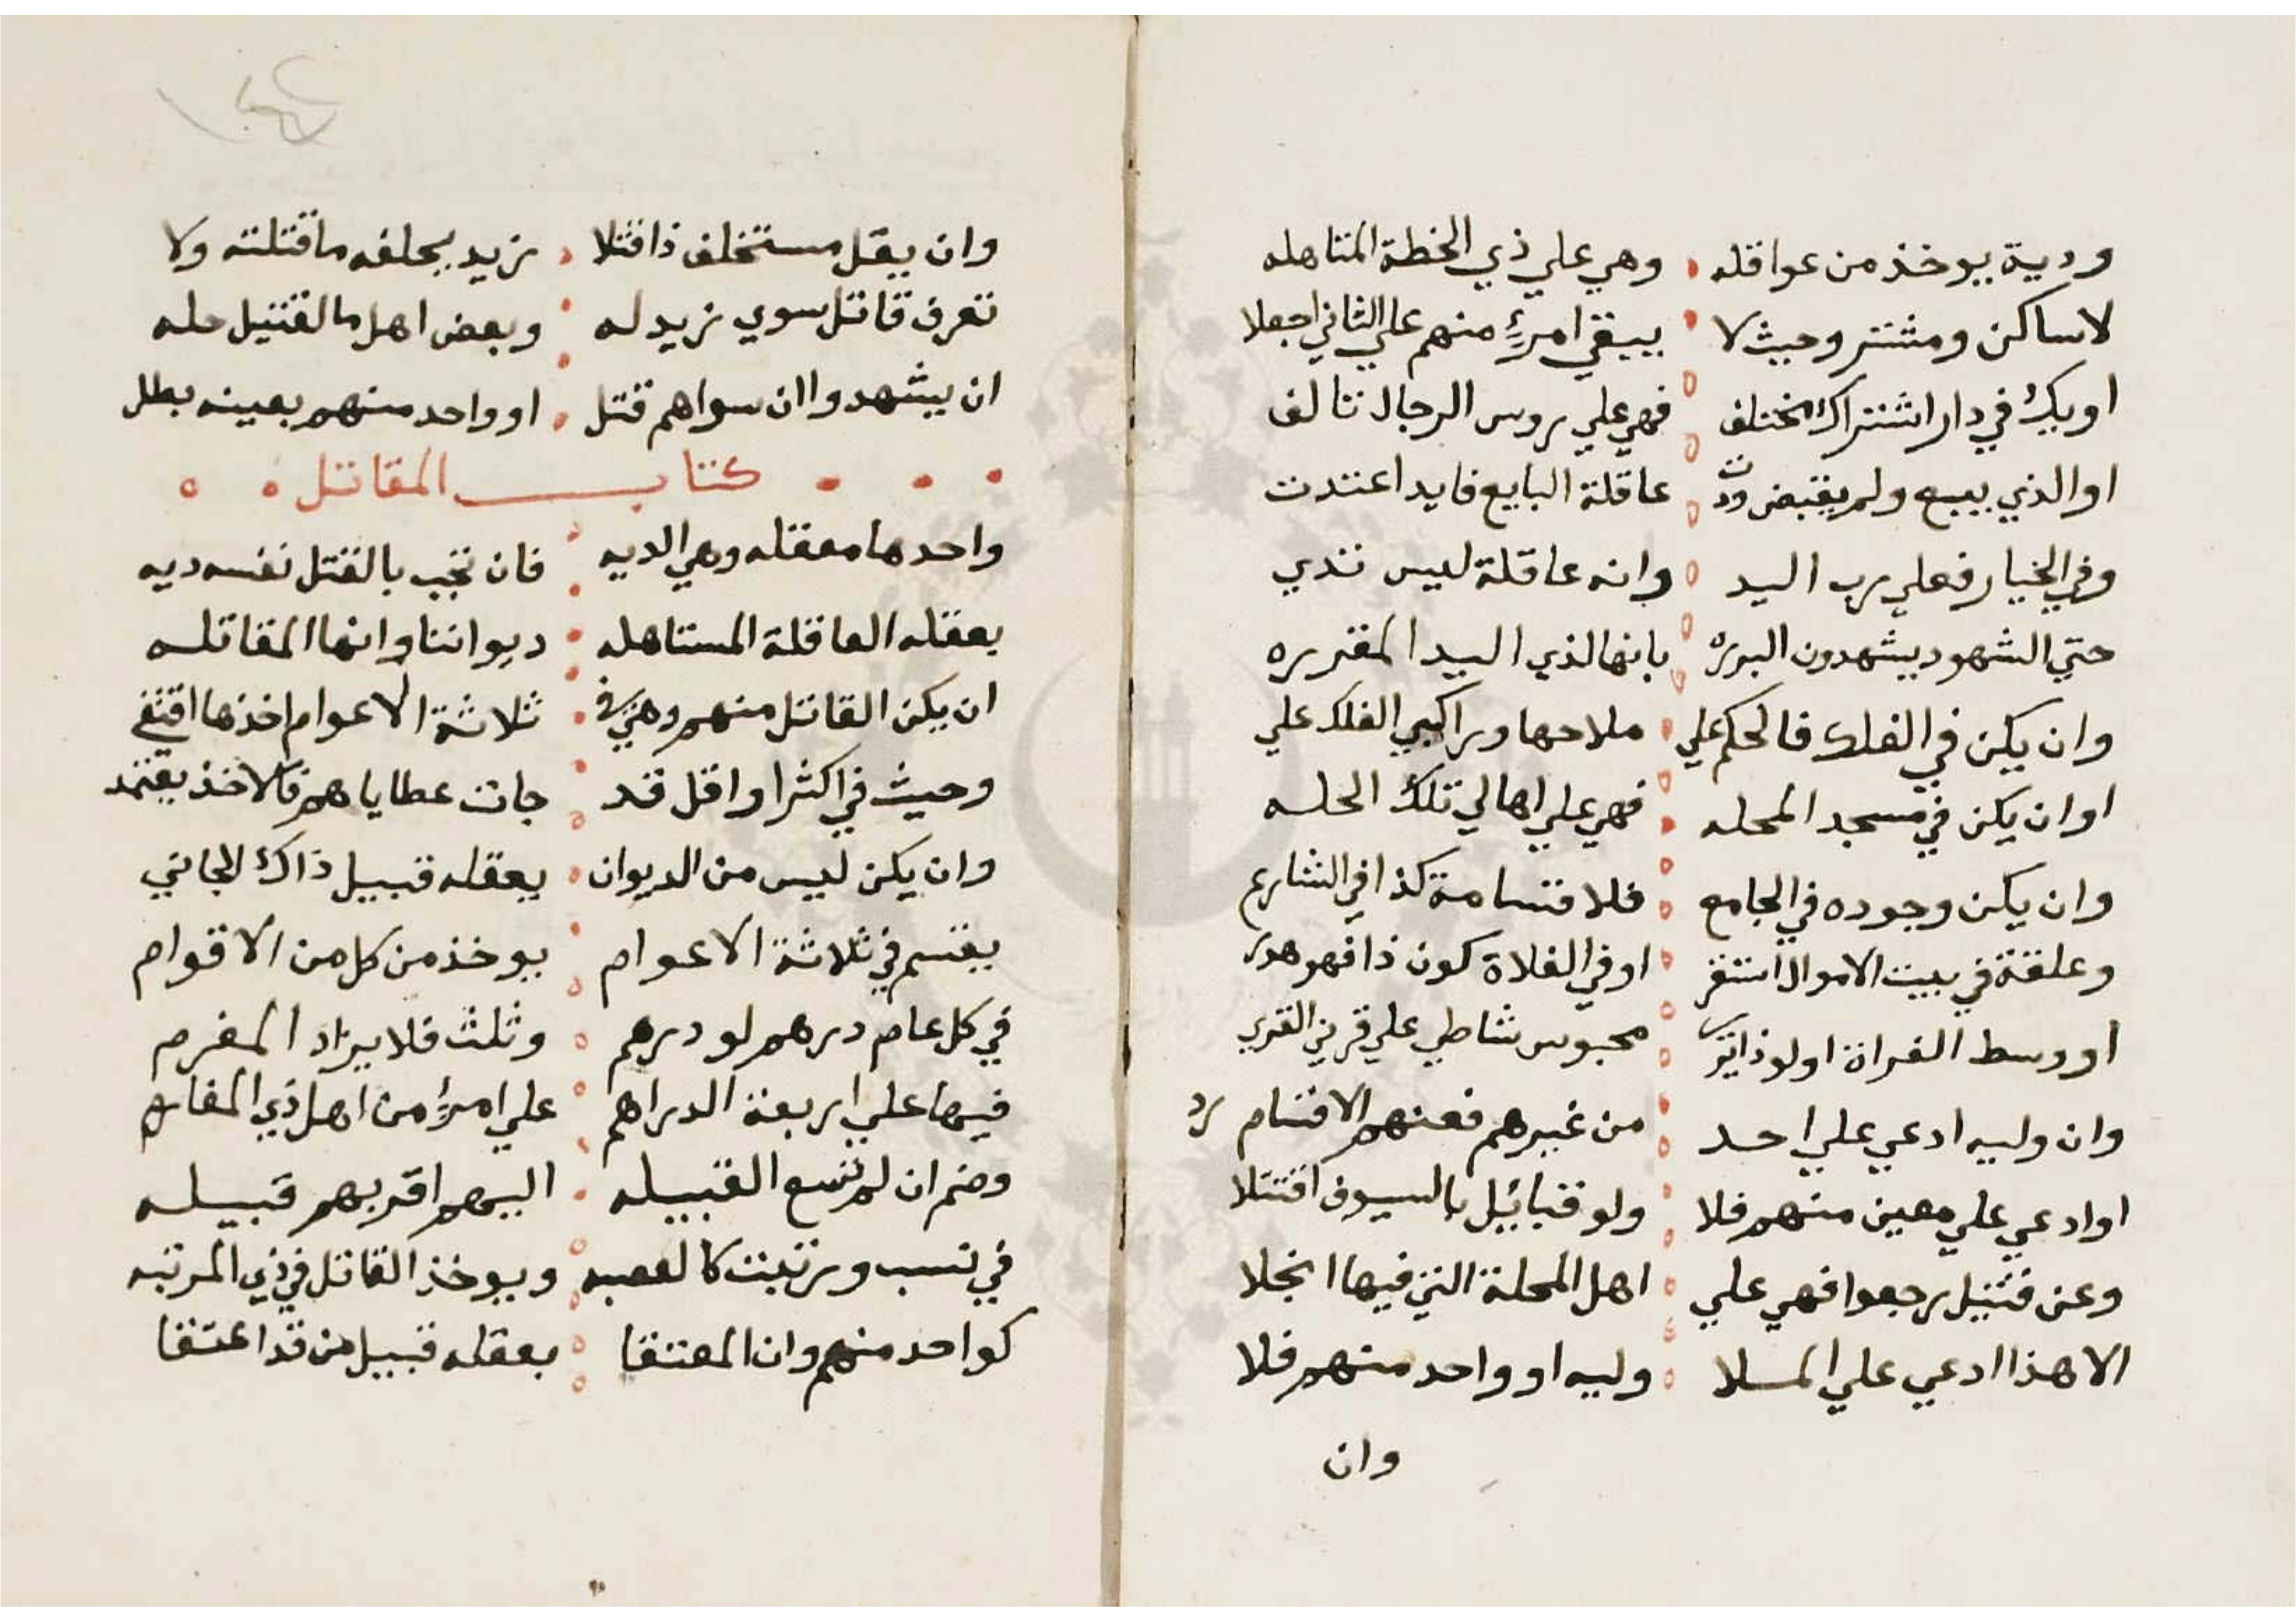 ودية يوخذ من عواقله وهي علي ذي الخطة المتاهله
لا ساكن ومشتر وحيث لا يبقي امرءٍ منهم علي الثاني اجعلا
او يك في دار اشتراك مختلف فهي علي روس الرجال تالف
او الذي يبيع ولم يقبض ودت عاقلة البايع فايد اعتدت
وفي الخيار فعلي رب اليد وانه عاقلة ليس تدي
حتي الشهود يشهدون البرره بانها لذي اليد المقرره
وان يكن في الفلك فالحكم علي ملاحها وراكبي الفلك علي
او ان يكن في مسجد المحله فهي علي اهالي تلك الحله
وان يكن وجوده في الجامع فلا قسامة كذا في الشارع
وعلقة في بيت الاموال استقر او في الفلاة كون ذا فهو هدر
او وسط الفراة اولو ذا تري محبوس شاطي علي قرني القري
وان وليه ادعي علي احد من غيرهم فعنهم الاقسام رد
او ادعي علي معين منهم فلا ولو قبائيل بالسيوف اقتتلا
وعن قتيل رجعوا فهي علي اهل المحلة التي فيها انجلا
الا هذا ادعي علي الملا وليه او واحد منهم فلا
وان
وان يقل مستخلف ذا قتلا زيد يحلفه ما قتلته ولا
تعرف قاتل سوي زيد له وبعض اهل ما لقتيل حله
ان يشهدوا ان سواهم قتل او واحد منهم بعينه بطل
كتاب المقاتل
واحدها معقله وهي الديه فان تجب بالقتل نفسه ديه
يعقله العاقلة المستاهله ديواننا وانها المقاتله
ان يكن القاتل منهم وهي في ثلاثة الاعوام اخذها اقتفي
وحيث في اكثر او اقل قد جات عطاياهم فالاخذ يعتمد
وان يكن ليس من الديوان يعقله قبيل ذاك الجاني
يقسم في ثلاثة الاعوام يوخذ من كل من الاقوام
في كل عام درهم لو درهم وثلث فلا يزاد المغرم
فيها علي اربعة الدراهم علي امرءٍ من اهل ذي المغارم
وضم ان لم تسع القبيله اليهم اقربهم قبيله
في نسب ورتبت كالعصبه ويوخذ القاتل في ذي المرتبه
كواحد منهم وان المعتقا يعقله قبيل من قد اعتقا